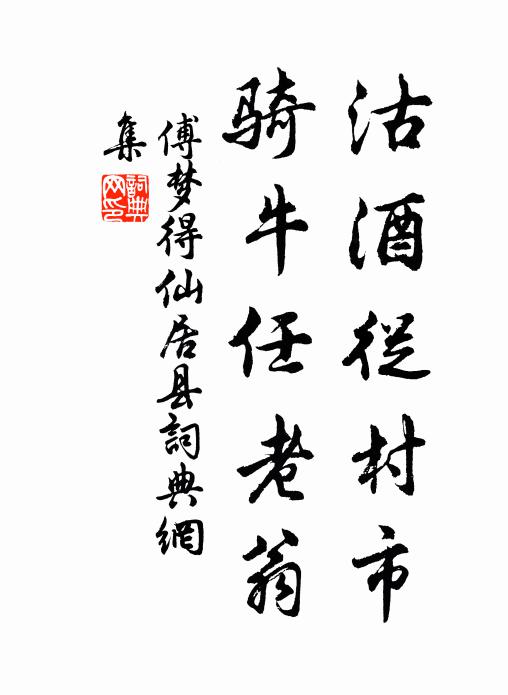 沽酒從村市
骑牛任老翁
傅梦得仙居县詞典網
集
詞典
网印